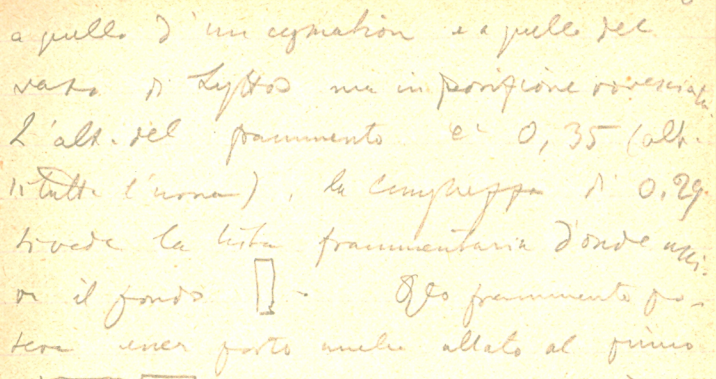 a quello d'un cymation e a quello del
vaso di Lyttos ma in posizione rovesciata.
L'alt. del frammento è 0,35 (alt.
di tutta l'), la lunghezza di 0.29.
si vede la lista frammentaria d'onde
il fondo . Qto frammento po-
teva esser posto anche allato al primo